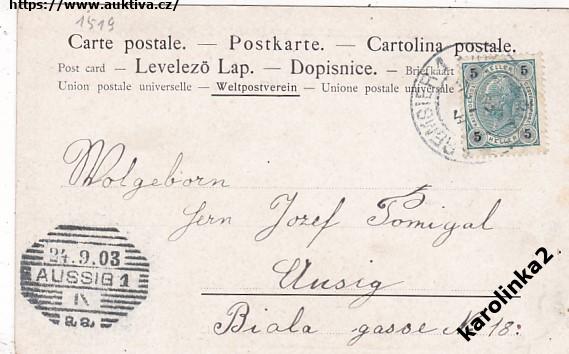 https://www.auktiva.cz/
1519
Carte postale. — Postkarte. — Cartolina postale.
Post card — Levelező Lap. — Dopisnice. — Briefkaart
Union postale universelle — Weltpostverein — Unione postale universale
5 5
HELLER
5 5
HELLER
Wolgeborn
Hern Jozef Pomigal
Ausig
Biala gasse No 18.
24.9.03
AUSSIG 1
karolinka2